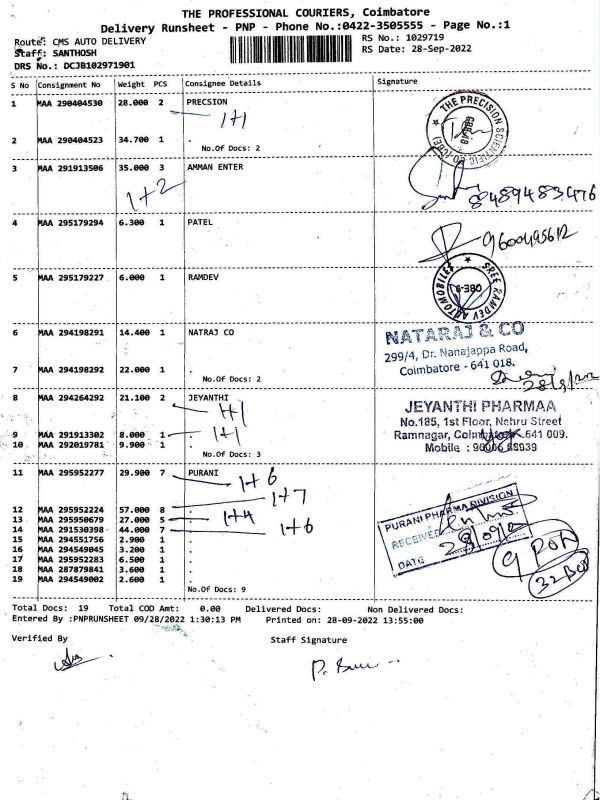 THE PROFESSIONAL COURIERS, Coimbatore
Delivery Runsheet - PNP - Phone No.:0422-3505555 - Page No.:1
Route: CMS AUTO DELIVERY
RS No.: 1029719
Staff: SANTHOSH
RS Date: 28-Sep-2022
DRS No.: DCJB102971901
S No Consignment No Weight PCS Consignee Details Signature
1 MAA 290404530 28.000 2 PRECSION
1+1
THE PRECISION SCIENTIFIC CO (CBE)
2 MAA 290404523 34.700 1 .
No.Of Docs: 2
3 MAA 291913506 35.000 3 AMMAN ENTER
1+2
8489483476
4 MAA 295179294 6.300 1 PATEL
9600495612
5 MAA 295179227 6.000 1 RAMDEV
SREE RAMDEV AUTOMOBILES
CBE-9
6 MAA 294198291 14.400 1 NATRAJ CO
NATARAJ & CO
299/4, Dr. Nanajappa Road,
Coimbatore - 641 018.
7 MAA 294198292 22.000 1 .
No.Of Docs: 2
8 MAA 294264292 21.100 2 JEYANTHI
1+1
JEYANTHI PHARMAA
No.185, 1st Floor, Nehru Street
Ramnagar, Coimbatore 641 009.
9 MAA 291913302 8.000 1 .
1+1
10 MAA 292019781 9.900 1 .
No.Of Docs: 3
11 MAA 295952277 29.900 7 PURANI
1+6
12 MAA 295952224 57.000 8 .
1+7
13 MAA 295950679 27.000 5 .
1+4
14 MAA 291530398 44.000 7 .
1+6
15 MAA 294551756 2.900 1 .
16 MAA 294549045 3.200 1 .
17 MAA 295952283 6.500 1 .
18 MAA 287879841 3.600 1 .
19 MAA 294549002 2.600 1 .
No.Of Docs: 9
PURANI PHARMA DIVISION
RECEIVED
DATE
9 POD
32 Box
Total Docs: 19 Total COD Amt: 0.00 Delivered Docs: Non Delivered Docs:
Entered By :PNPRUNSHEET 09/28/2022 1:30:13 PM Printed on: 28-09-2022 13:55:00
Verified By Staff Signature